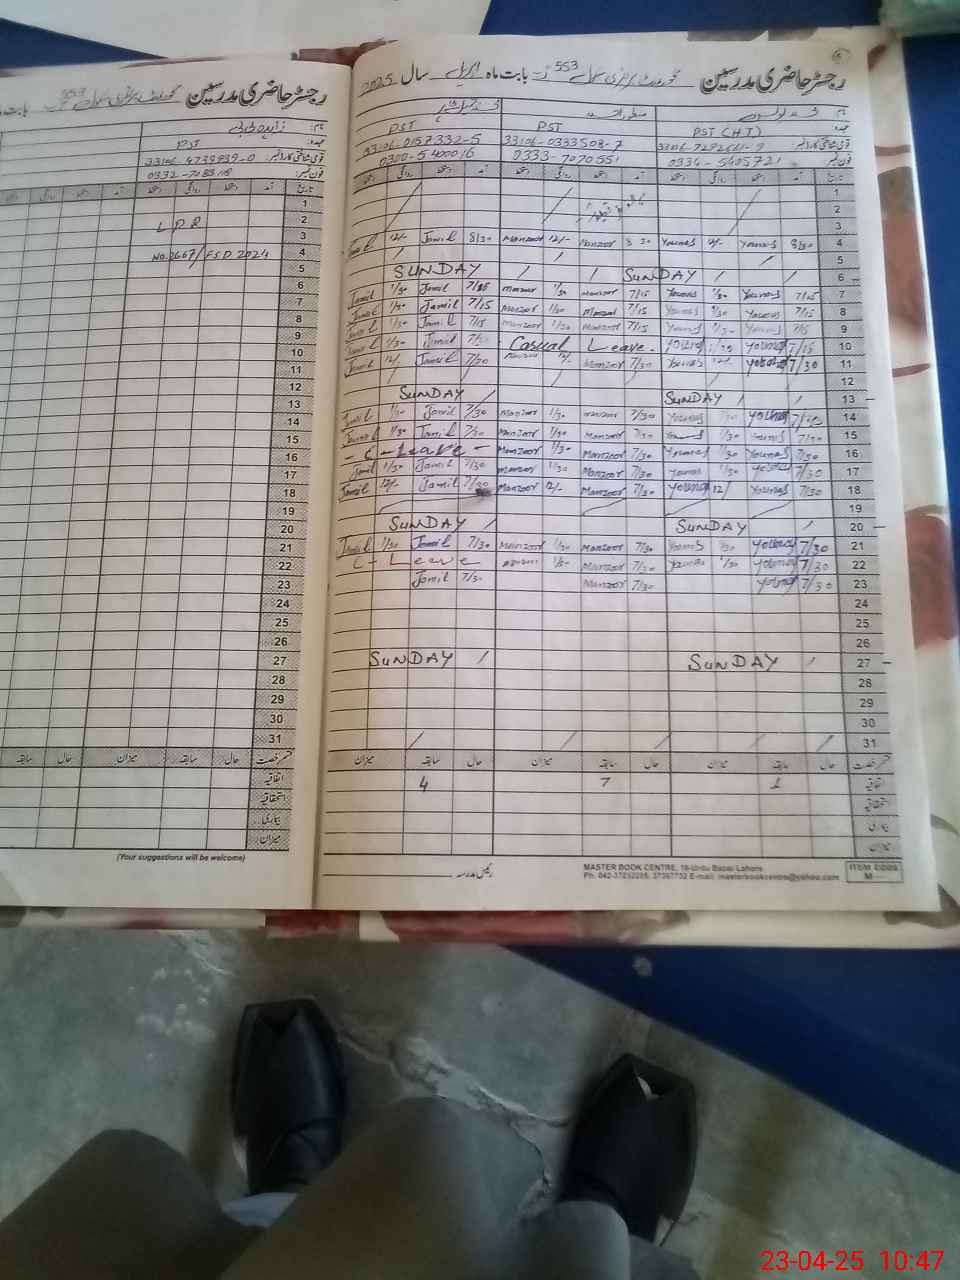 رجسٹر حاضری مدرسین گورنمنٹ پرائمری سکول 553 بابت ماہ اپریل سال 2025
PST PST PST (H.T)
33106-0157332-5 33106-0333508-7
0300-5400016 0333-7070551 0334-5605721
تاریخ
1
2
3
Jamil 12/- Jamil 8/30 Manzoor 12/- Manzoor 8 30 Younas 12/- Younas 8/30 4
5
SUNDAY SUNDAY 6
Jamil 1/30 Jamil 7/15 Manzoor 1/30 Manzoor 7/15 Younas 1/30 Younas 7/15 7
Jamil 1/30 Jamil 7/15 Manzoor 1/30 Manzoor 7/15 Younas 1/30 Younas 7/15 8
Jamil 1/30 Jamil 7/15 Manzoor 1/30 Manzoor 7/15 Younas 1/30 Younas 7/15 9
Jamil 1/30 Jamil Casual Leave. Younas 1/30 Younas 7/15 10
Jamil 12/- Jamil 7/30 Manzoor 12/- Manzoor 7/30 Younas 12/- Younas 7/30 11
12
SUNDAY SUNDAY 13
Jamil 1/30 Jamil 7/30 Manzoor 1/30 Manzoor 7/30 Younas 1/30 Younas 14
Jamil 1/30 Jamil 7/30 Manzoor 1/30 Manzoor 7/30 Younas 1/30 Younas 7/30 15
- C-Leave - Manzoor 1/30 Manzoor 7/30 Younas 1/30 Younas 7/30 16
Jamil 1/30 Jamil 7/30 Manzoor 1/30 Manzoor 7/30 Younas 1/30 Younas 7/30 17
Jamil 12/- Jamil 7/30 Manzoor 12/- Manzoor 7/30 Younas 12/ Younas 7/30 18
19
SUNDAY SUNDAY 20
Jamil 1/30 Jamil 7/30 Manzoor 1/30 Manzoor 7/30 Younas 1/30 Younas 7/30 21
C-Leave Manzoor Manzoor 7/30 Younas 1/30 Younas 7/30 22
Jamil 7/30 Manzoor 7/30 Younas 7/30 23
24
25
26
SUNDAY SUNDAY 27
28
29
30
31
میزان سابقہ حال میزان سابقہ حال میزان سابقہ حال قسم رخصت
4 7 1 اتفاقیہ
استحقاقیہ
بیماری
میزان
رئیس مدرسہ
MASTER BOOK CENTRE, Urdu Bazar Lahore
E-mail: masterbookcentre@yahoo.com
ITEM CODE
M
رجسٹر حاضری مدرسین گورنمنٹ پرائمری سکول 553 بابت ماہ
نام: زاہدہ بی بی
PST
33106 4739939-0
تاریخ
1
2
L P R
3
NO.2667/FSD 2024 4
5
6
7
8
9
10
11
12
13
14
15
16
17
18
19
20
21
22
23
24
25
26
27
28
29
30
31
سابقہ حال میزان سابقہ حال قسم رخصت
اتفاقیہ
استحقاقیہ
بیماری
میزان
(Your suggestions will be welcome)
23-04-25 10:47